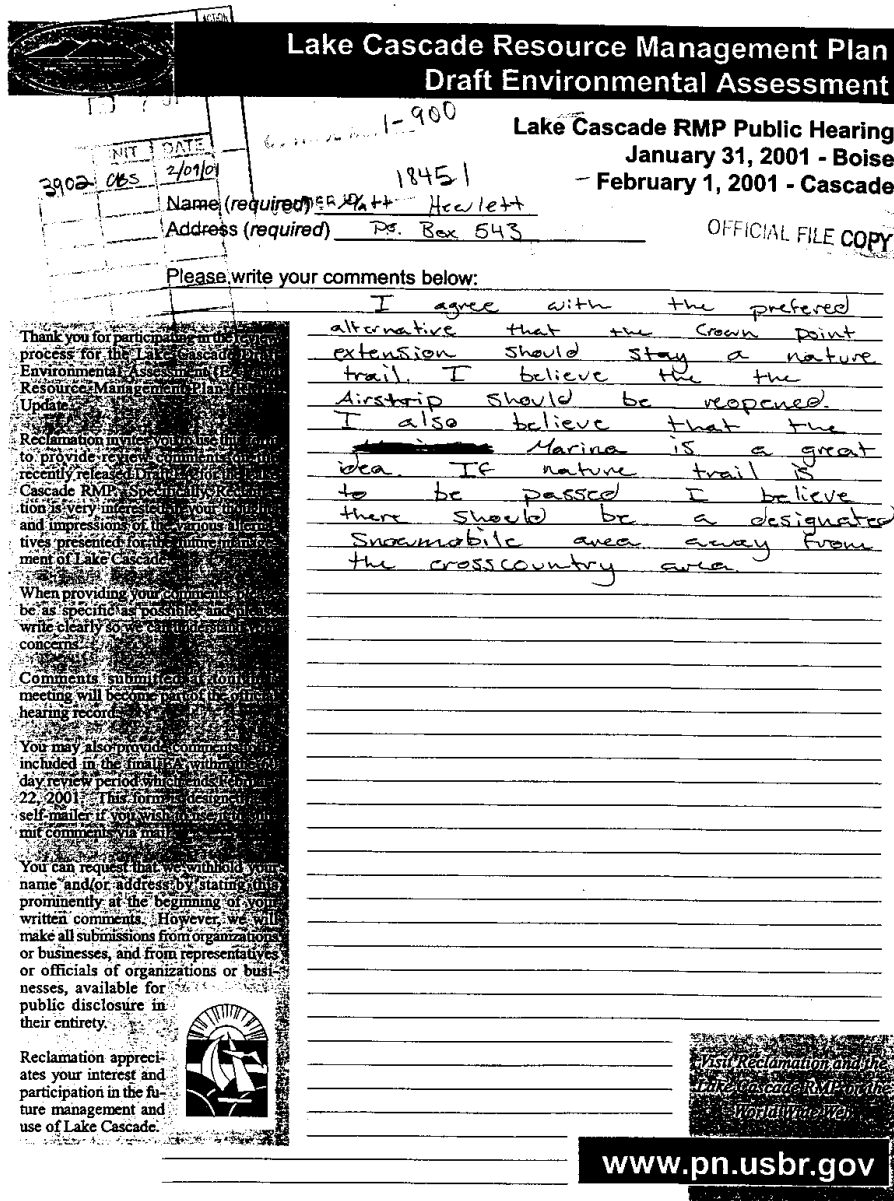 ACTION
Lake Cascade Resource Management Plan
Draft Environmental Assessment
1-900
Lake Cascade RMP Public Hearing
January 31, 2001 - Boise
February 1, 2001 - Cascade
INIT DATE
3902 OBS 2/09/01
18451
Name (required) Matt Hewlett
Address (required) P.O. Box 543
OFFICIAL FILE COPY
Please write your comments below:
I agree with the prefered
alternative that the Crown point
extension should stay a nature
trail. I believe the the
Airstrip should be reopened.
I also believe that the
Marina is a great
idea. If nature trail is
to be passed I believe
there should be a designated
Snowmobile area away from
the crosscountry area.
Thank you for participating in the review
process for the Lake Cascade Draft
Environmental Assessment (EA) and
Resource Management Plan (RMP)
Update.
Reclamation invites you to use this form
to provide review comments on the
recently released Draft EA for the Lake
Cascade RMP. Specifically, Reclama-
tion is very interested in your thoughts
and impressions of the various alterna-
tives presented for the future manage-
ment of Lake Cascade.
When providing your comments, please
be as specific as possible, and please
write clearly so we can understand your
concerns.
Comments submitted at tonight's
meeting will become part of the official
hearing record.
You may also provide comments to be
included in the final EA within the
day review period which ends February
22, 2001. This form is designed as a
self-mailer if you wish to use it to sub-
mit comments via mail.
You can request that we withhold your
name and/or address by stating this
prominently at the beginning of your
written comments. However, we will
make all submissions from organizations
or businesses, and from representatives
or officials of organizations or busi-
nesses, available for
public disclosure in
their entirety.
Reclamation appreci-
ates your interest and
participation in the fu-
ture management and
use of Lake Cascade.
Visit Reclamation and the
Lake Cascade RMP on the
World Wide Web
www.pn.usbr.gov